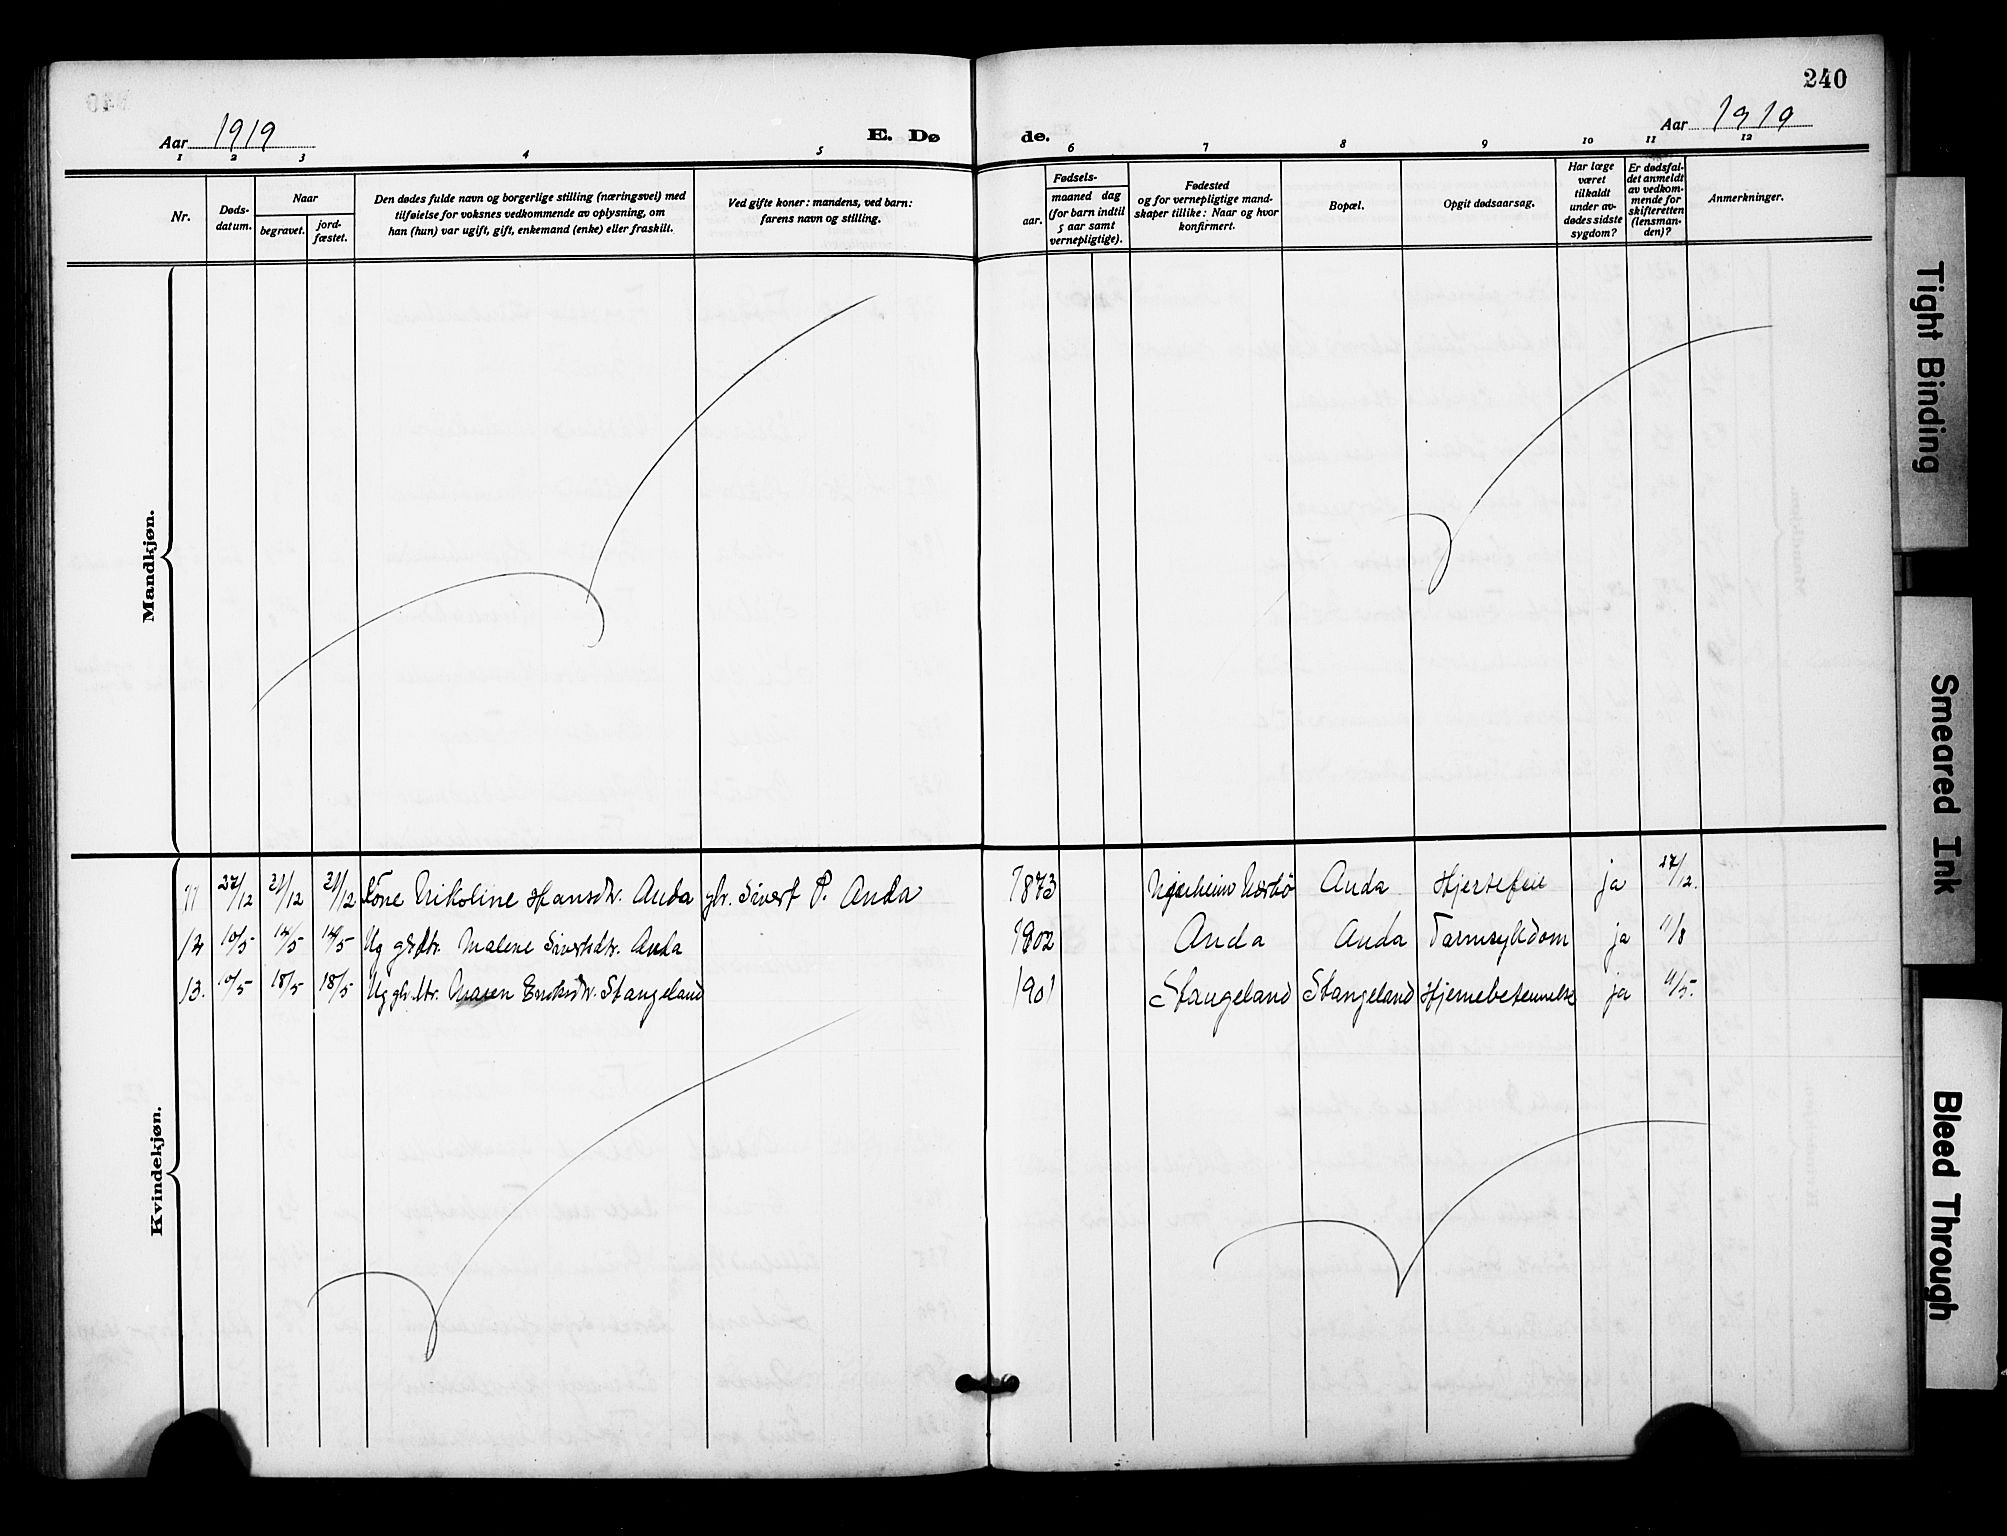 240
Aar 1919
E. Døde.
Aar 1919
1 2 3 4 5 6 7 8 9 10 11 12
Nr.
Døds-
datum.
Naar
begravet.
jord-
fæstet.
Den dødes fulde navn og borgerlige stilling (næringsvei) med
tilføielse for voksnes vedkommende av oplysning, om
han (hun) var ugift, gift, enkemand (enke) eller fraskilt.
Ved gifte koner: mandens, ved barn:
farens navn og stilling.
Fødsels-
aar.
maaned dag
(for barn indtil
5 aar samt
vernepligtige).
Fødested
og for vernepligtige mand-
skaper tillike: Naar og hvor
konfirmert.
Bopæl.
Opgit dødsaarsag.
Har læge
været
tilkaldt
under av-
dødes sidste
sygdom?
Er dødsfal-
det anmeldt
av vedkom-
mende for
skifteretten
(lensman-
den)?
Anmerkninger.
Mandkjøn.
11 27/12 31/12 31/12 Kone Nikoline Hansdtr. Anda gbr. Sivert P. Anda 1873 Njærheim Nærbø Anda Hjertefeil ja 27/12.
12 10/5 14/5 14/5 Ug gbrdtr. Malene Sivertsdtr. Anda 1902 Anda Anda Tarmsykdom ja 11/8
13. 10/5 18/5 18/5 Ug gbr.dtr. Maren Eriksdtr. Stangeland 1901 Stangeland Stangeland Hjernebetennelse ja 11/5.
Kvindekjøn.
Tight Binding
Smeared Ink
Bleed Through